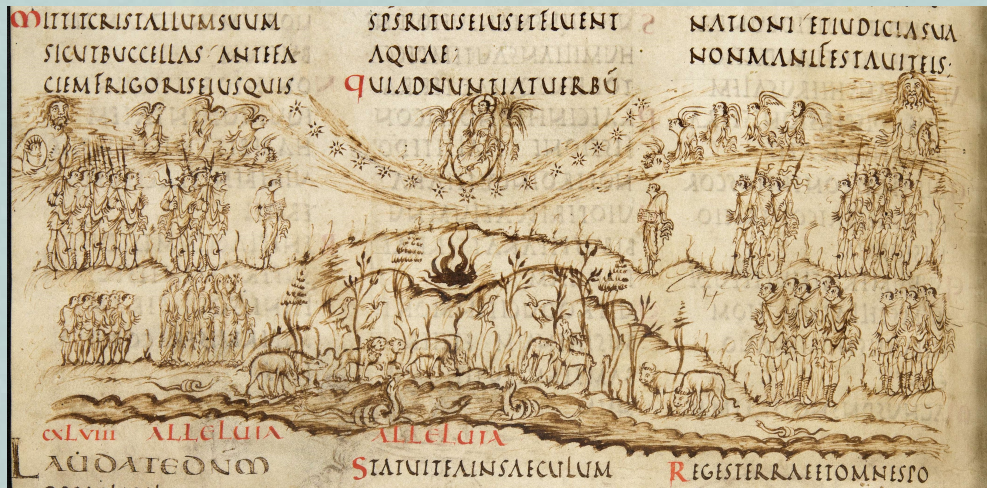 MITITCRISTALLUMSUUM
SICUTBUCCELLAS·ANTEFA
CIEMFRIGORISEIUSQUIS
SPSRITUSEIUSETFLUENT
AQUAE·
QUIADNUNTIATUERBŪ
NATIONI·ETIUDICIASUA
NONMANIFESTAUITEIS·
CXLVIII ALLELUIA
LAUDATEDNM̄
ALLELUIA
STATUITEAINSAECULUM
REGESTERRAEETOMNESPO